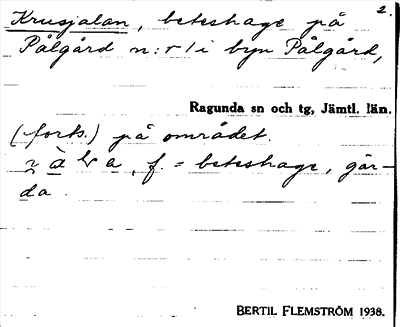 2.
Krusjalan, beteshage på
Pålgård n:r 1 i byn Pålgård,
Ragunda sn och tg, Jämtl. län.
(forts.) på området.
f. = beteshage, går-
da.
BERTIL FLEMSTRÖM 1938.